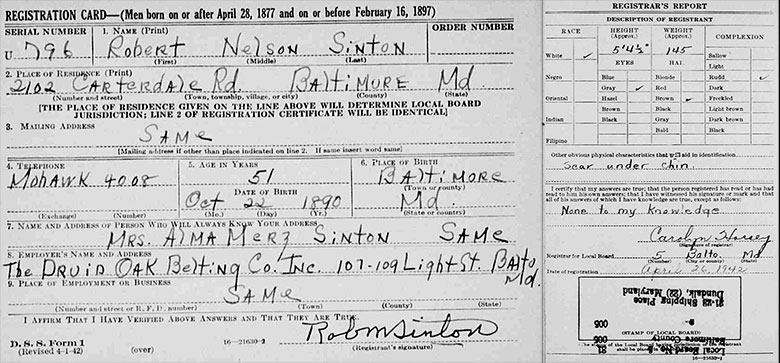 REGISTRATION CARD—(Men born on or after April 28, 1877 and on or before February 16, 1897)
SERIAL NUMBER
1. NAME (Print)
ORDER NUMBER
U 796
Robert Nelson Sinton
(First) (Middle) (Last)
2. PLACE OF RESIDENCE (Print)
2102 Carterdale Rd. Baltimore Md.
(Number and street) (Town, township, village, or city) (County) (State)
[THE PLACE OF RESIDENCE GIVEN ON THE LINE ABOVE WILL DETERMINE LOCAL BOARD
JURISDICTION; LINE 2 OF REGISTRATION CERTIFICATE WILL BE IDENTICAL]
3. MAILING ADDRESS
Same
[Mailing address if other than place indicated on line 2. If same insert word same]
4. TELEPHONE
5. AGE IN YEARS
6. PLACE OF BIRTH
Mohawk 4008
51
Baltimore
DATE OF BIRTH
(Town or county)
Oct 22 1890
Md.
(Exchange) (Number)
(Mo.) (Day) (Yr.)
(State or country)
7. NAME AND ADDRESS OF PERSON WHO WILL ALWAYS KNOW YOUR ADDRESS
Mrs. Alma Merz Sinton Same
8. EMPLOYER'S NAME AND ADDRESS
The Druid Oak Belting Co. Inc. 107-109 Light St. Balto Md.
9. PLACE OF EMPLOYMENT OR BUSINESS
Same
(Number and street or R. F. D. number) (Town) (County) (State)
I AFFIRM THAT I HAVE VERIFIED ABOVE ANSWERS AND THAT THEY ARE TRUE.
D. S. S. Form 1
(Revised 4-1-42) (over)
16—21630-2
Rob N Sinton
(Registrant's signature)
REGISTRAR'S REPORT
DESCRIPTION OF REGISTRANT
RACE
HEIGHT
(Approx.)
WEIGHT
(Approx.)
COMPLEXION
White ✓
5'4½"
145
Sallow
EYES
HAIR
Light
Negro
Blue
Blonde
Ruddy ✓
Gray ✓
Red
Dark
Oriental
Hazel
Brown ✓
Freckled
Brown
Black
Light brown
Indian
Black
Gray
Dark brown
Bald
Black
Filipino
Other obvious physical characteristics that will aid in identification
Scar under chin.
I certify that my answers are true; that the person registered has read or has had
read to him his own answers; that I have witnessed his signature or mark and that
all of his answers of which I have knowledge are true, except as follows:
None to my knowledge
Carolyn
(Signature of registrar)
Registrar for Local Board Balto. Md.
(Number) (City or county) (State)
Date of registration April 26, 1942
Local Board No.
Baltimore County
005
005
21-23 Shipping Place
Dundalk, (22) Maryland
(STAMP OF LOCAL BOARD)